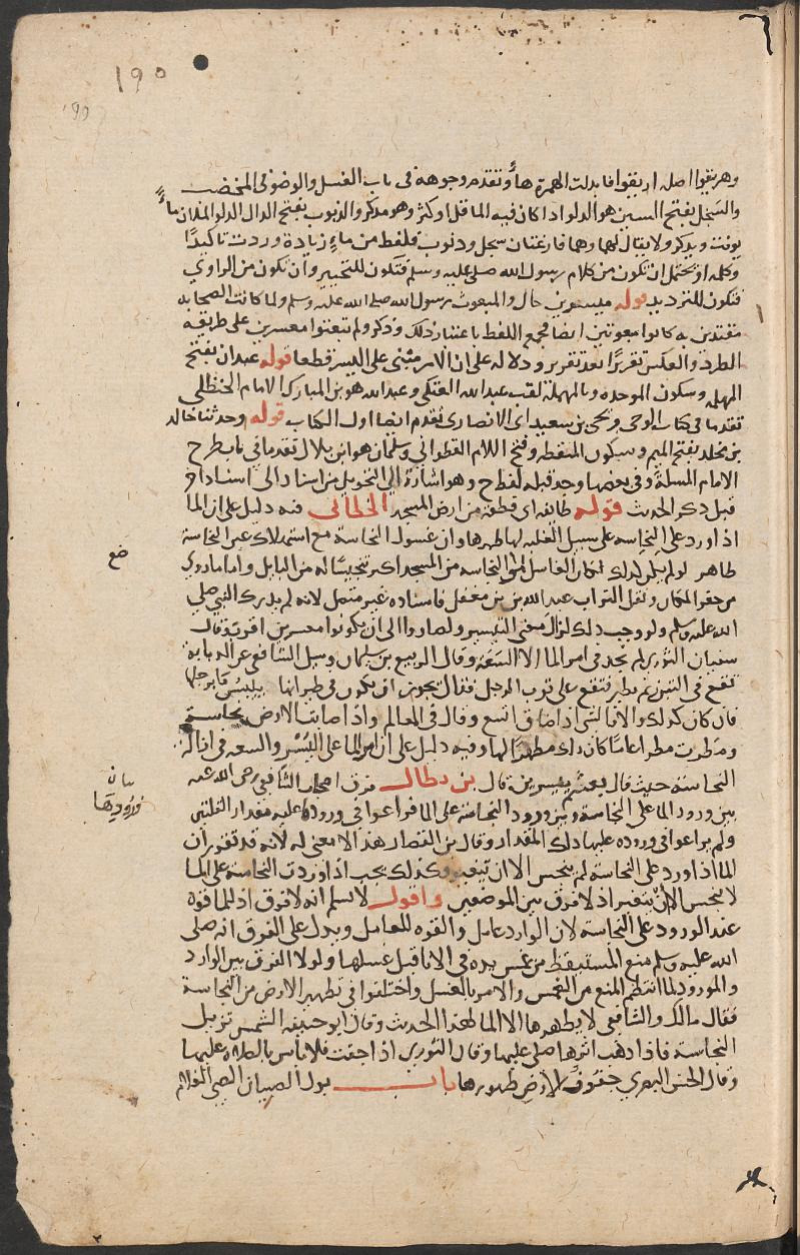 ١٩٥
وهريقوا اصله اريقوا فابدلت الهمزة هاءً وتقدم وجوهه في باب الغسل والوضو في المخضب
والسَجل بفتح السين هو الدلو اذا كان فيه الما قل او كثر وهو مذكر والذنوب بفتح الذال الدلو الملان ماءً
يونث ويذكر ولا يقال لهما وهما فارغتان سجل وذنوب فلفظ من ماءٍ زيادة وردت تاكيدًا
وكلمة او يحتمل ان تكون من كلام رسول الله صلى عليه وسلم فتكون للتخيير وان تكون من الراوي
فتكون للترديد قوله ميسرين حال والمبعوث رسول الله صلى الله عليه وسلم ولما كانت الصحابه
مقتدين به كانوا مبعوثين ايضا فجمع اللفظ باعتبار ذلك وذكر ولم تبعثوا معسرين على طريقه
الطرد والعكس تقريرًا بعد تقرير ودلاله على ان الامر مبنى على اليسر قطعا قوله عبدان بفتح
المهمله وسكون الموحده وبالمهملة لقب عبد الله العتكي وعبد الله هو بن المبارك الامام الحنظلي
تقدما في كتاب الوحي ويحيى بن سعيد اى الانصارى تقدم ايضا اول الكتاب قوله وحدثنا خالد
بن مخلد بفتح الميم وسكون المنقطه وفتح اللام القطواني وسلمان هو ابن بلال تقدما في باب طرح
الامام المسلة وفي بعضها وجد قبله لفظ ح وهو اشارة الي التحويل من اسناد الى اسناد اخر
قبل ذكر الحديث قوله طايفه اى قطعة من ارض المسجد الخطابى فيه دليل على ان الما
اذا ورد على النجاسه على سبيل الغلبه لها طهرها وان غسوله النجاسة مع استهلاك عين النجاسة
طاهر لو لم يكن كذلك لكان الغاسل لموضع النجاسه من المسجد اكثر تنجيسًا له من البايل واما ما روي
من حفر المكان ونقل التراب عبد الله بن مغفل فاسناده غير متصل لانه لم يدرك النبي صلى
الله عليه وسلم ولو وجب ذلك لزال معنى التيسير ولصاروا الى ان يكونوا معسرين اقرب وقال
سفيان الثوري لم نجد في امر الما الا السَعَة وقال الربيع بن سليمان وسيل الشافعي عن الذبابة
تقع في النتن ثم تطير فتقع على ثوب الرجل فقال يجوز ان يكون في طيرانها ييبس ما برجلها
فان كان كذلك والا فالشى اذا ضاق اتسع وقال في المعالم واذا اصابت الارض نجاسة
ومطرت مطرا عاما كان ذلك مطهرًا لها وفيه دليل على ان امر الما على اليُسْر والسعه في ازاله
النجاسة حيث قال بعثتم ميسرين قال بن بطال فرق اصحاب الشافعى رضى الله عنه
بين ورود الما على النجاسة وبين ورود النجاسة على الما فراعوا في ورودها عليه مقدار القلتين
ولم يراعوا في وروده عليها ذلك المقدار وقال بن القصار هذا لا معنى له لانه قد تقرر أن
الما اذا ورد على النجاسة لم ينجس الا ان تغير فكذلك يجب اذا وردت النجاسة على الما
لا ينجس الا ان يتغير اذ لا فرق بين الموضعين واقول لا نسلم انه لا فرق اذ للما قوة
عند الورود على النجاسة لان الوارد عامل والقوه للعامل ويدل على الفرق انه صلى
الله عليه وسلم منع المستيقظ من غمس يده في الانا قبل غسلها ولولا الفرق بين الوارد
والمورود لما انتظم المنع من الغمس والامر بالغسل واختلفوا في تطهير الارض من النجاسة
فقال مالك والشافعى لا يطهرها الا الما لهذا الحديث وقال ابو حنيفه الشمس تزيل
النجاسة فاذا ذهب اثرها صلى عليها وقال الثوري اذا جفت فلا باس بالصلاه عليها
وقال الحسن البصري جفوف الارض طهورها باب بول الصبيان الصبي الغلام
بيان
ورودها